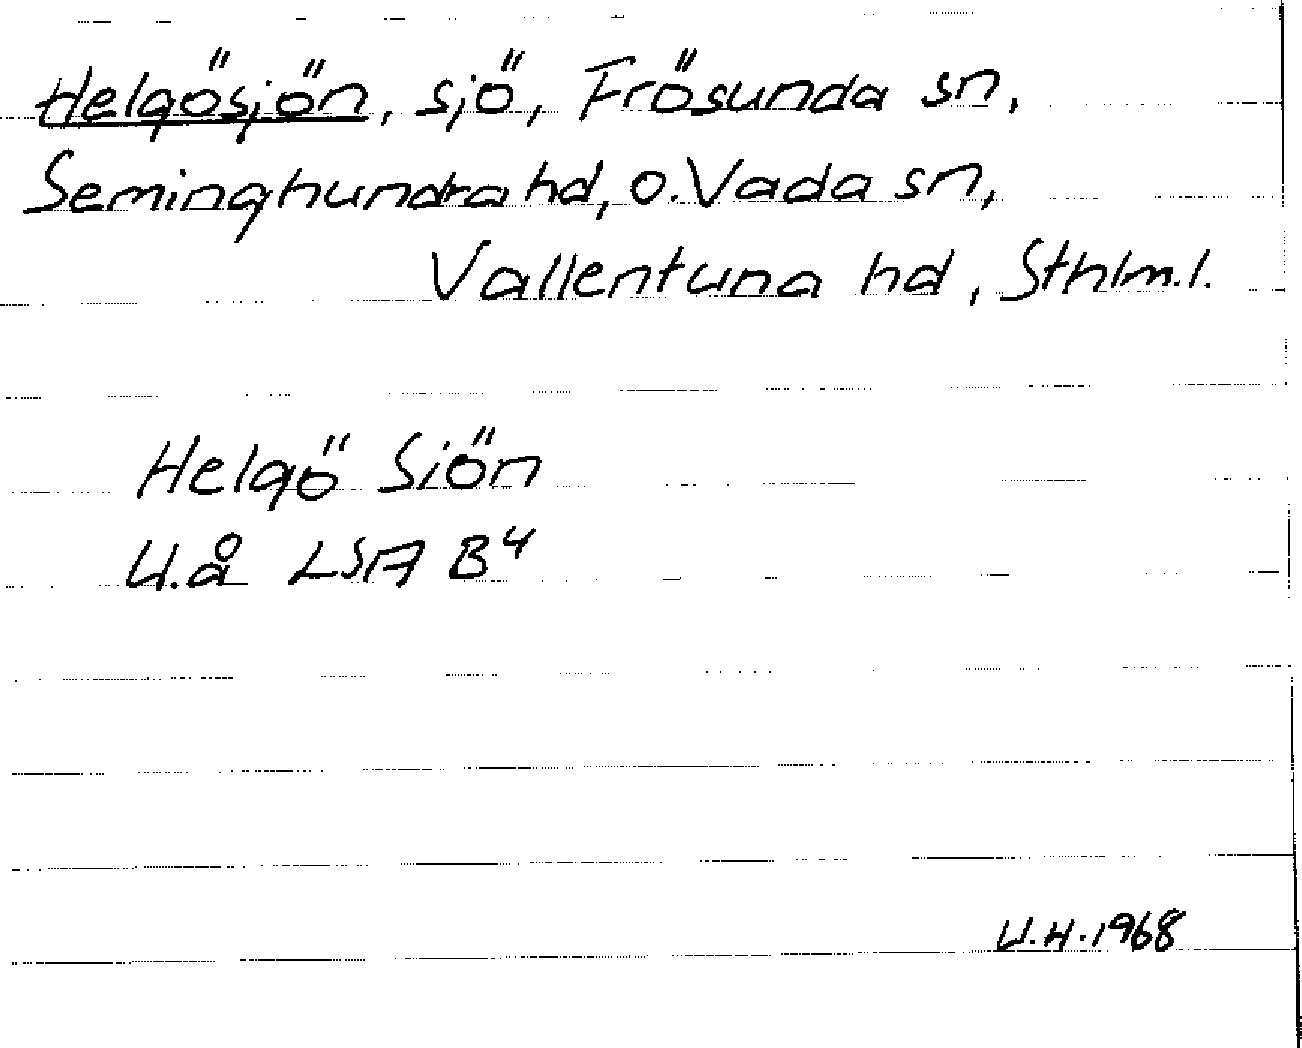 Helgösjön, sjö, Frösunda sn,
Seminghundra hd, o. Vada sn,
Vallentuna hd, Sthlm.l.
Helgö Siön
U.å LSA B4
U.H.1968